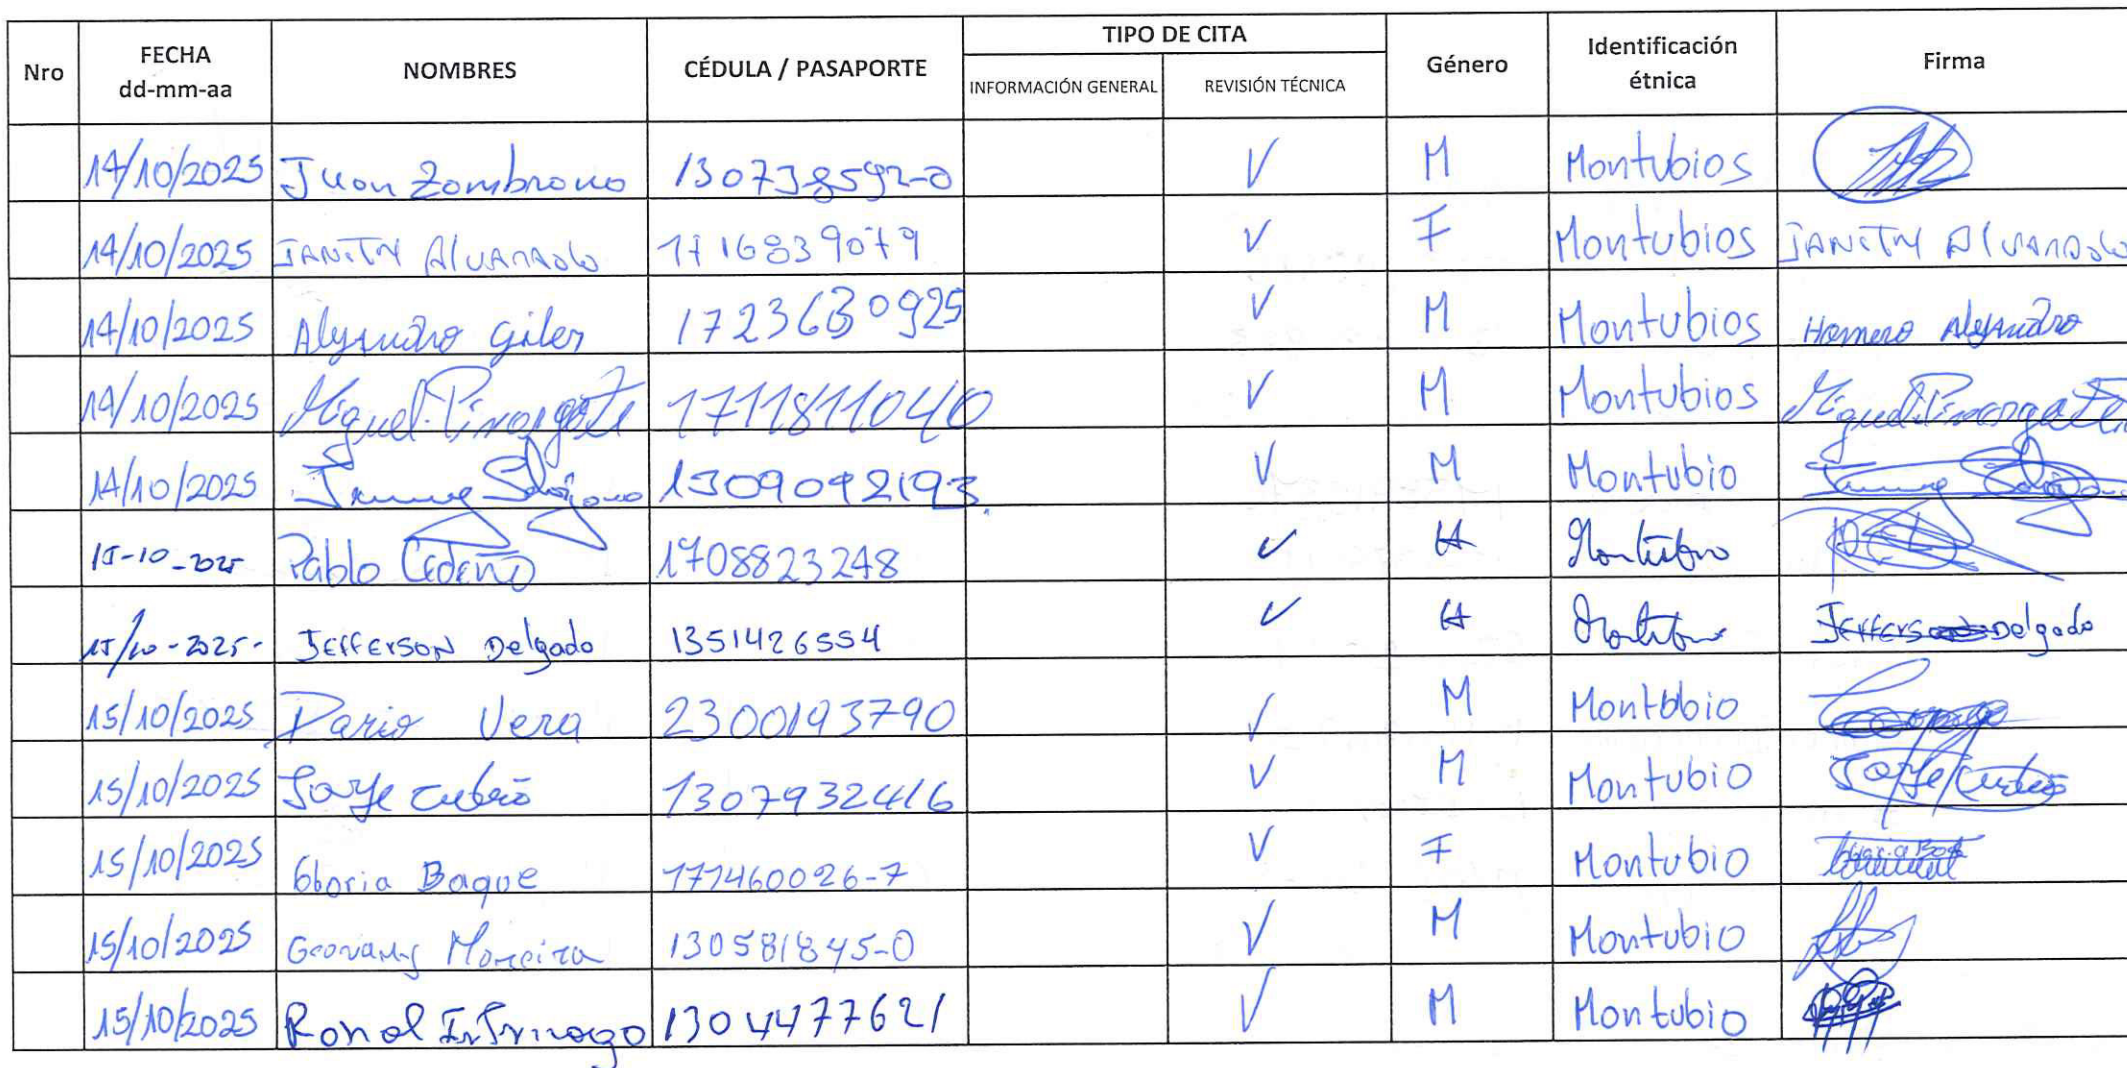 Nro FECHA dd-mm-aa NOMBRES CÉDULA / PASAPORTE TIPO DE CITA INFORMACIÓN GENERAL REVISIÓN TÉCNICA Género Identificación étnica Firma
14/10/2025 Juan Zambrano 130738592-0 V M Montubios
14/10/2025 JANITH Alvarado 1716839079 V F Montubios JANITH Alvarado
14/10/2025 Alejandro Giler 1723630925 V M Montubios Homero Alejandro
14/10/2025 Miguel Pinargote 1711811040 V M Montubios Miguel Pinargote
14/10/2025 1309092193 V M Montubio
15-10-2025 Pablo Cedeño 1708823248 ✓ H Montubio
15/10-2025- JEFFERSON Delgado 1351426554 ✓ H Montubio JEFFERSON Delgado
15/10/2025 Dario Vera 2300193790 ✓ M Montubio
15/10/2025 Jorge 1307932416 V M Montubio Jorge
15/10/2025 Gloria Baque 171460026-7 V F Montubio
15/10/2025 Geovanny Moreira 130581845-0 V M Montubio
15/10/2025 Ronal Intriago 1304477621 V M Montubio